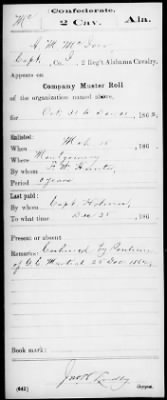 Confederate.
Mc 2 Cav. Ala.
Capt., Co. 2 Reg't Alabama Cavalry.
Appears on
Company Muster Roll
of the organization named above,
for Oct 31 to Dec 31, 186
Enlisted:
When 186
Where Montgomery
By whom
Period years
Last paid:
By whom Capt
To what time Dec 31 186
Present or absent
Remarks: Cashiered by Sentence
of G. C. Martial 25 Dec 186
Book mark:
(642) Copyist.